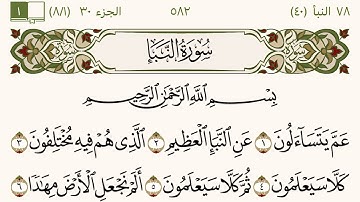 ٧٨ النبأ (٤٠) ٥٨٢ الجزء ٣٠ (٨٨) ١
سُورَةُ النَّبَإِ
بِسْمِ اللَّهِ الرَّحْمَٰنِ الرَّحِيمِ
عَمَّ يَتَسَاءَلُونَ ١ عَنِ النَّبَإِ الْعَظِيمِ ٢ الَّذِي هُمْ فِيهِ مُخْتَلِفُونَ ٣
كَلَّا سَيَعْلَمُونَ ٤ ثُمَّ كَلَّا سَيَعْلَمُونَ ٥ أَلَمْ نَجْعَلِ الْأَرْضَ مِهَٰدًا ٦